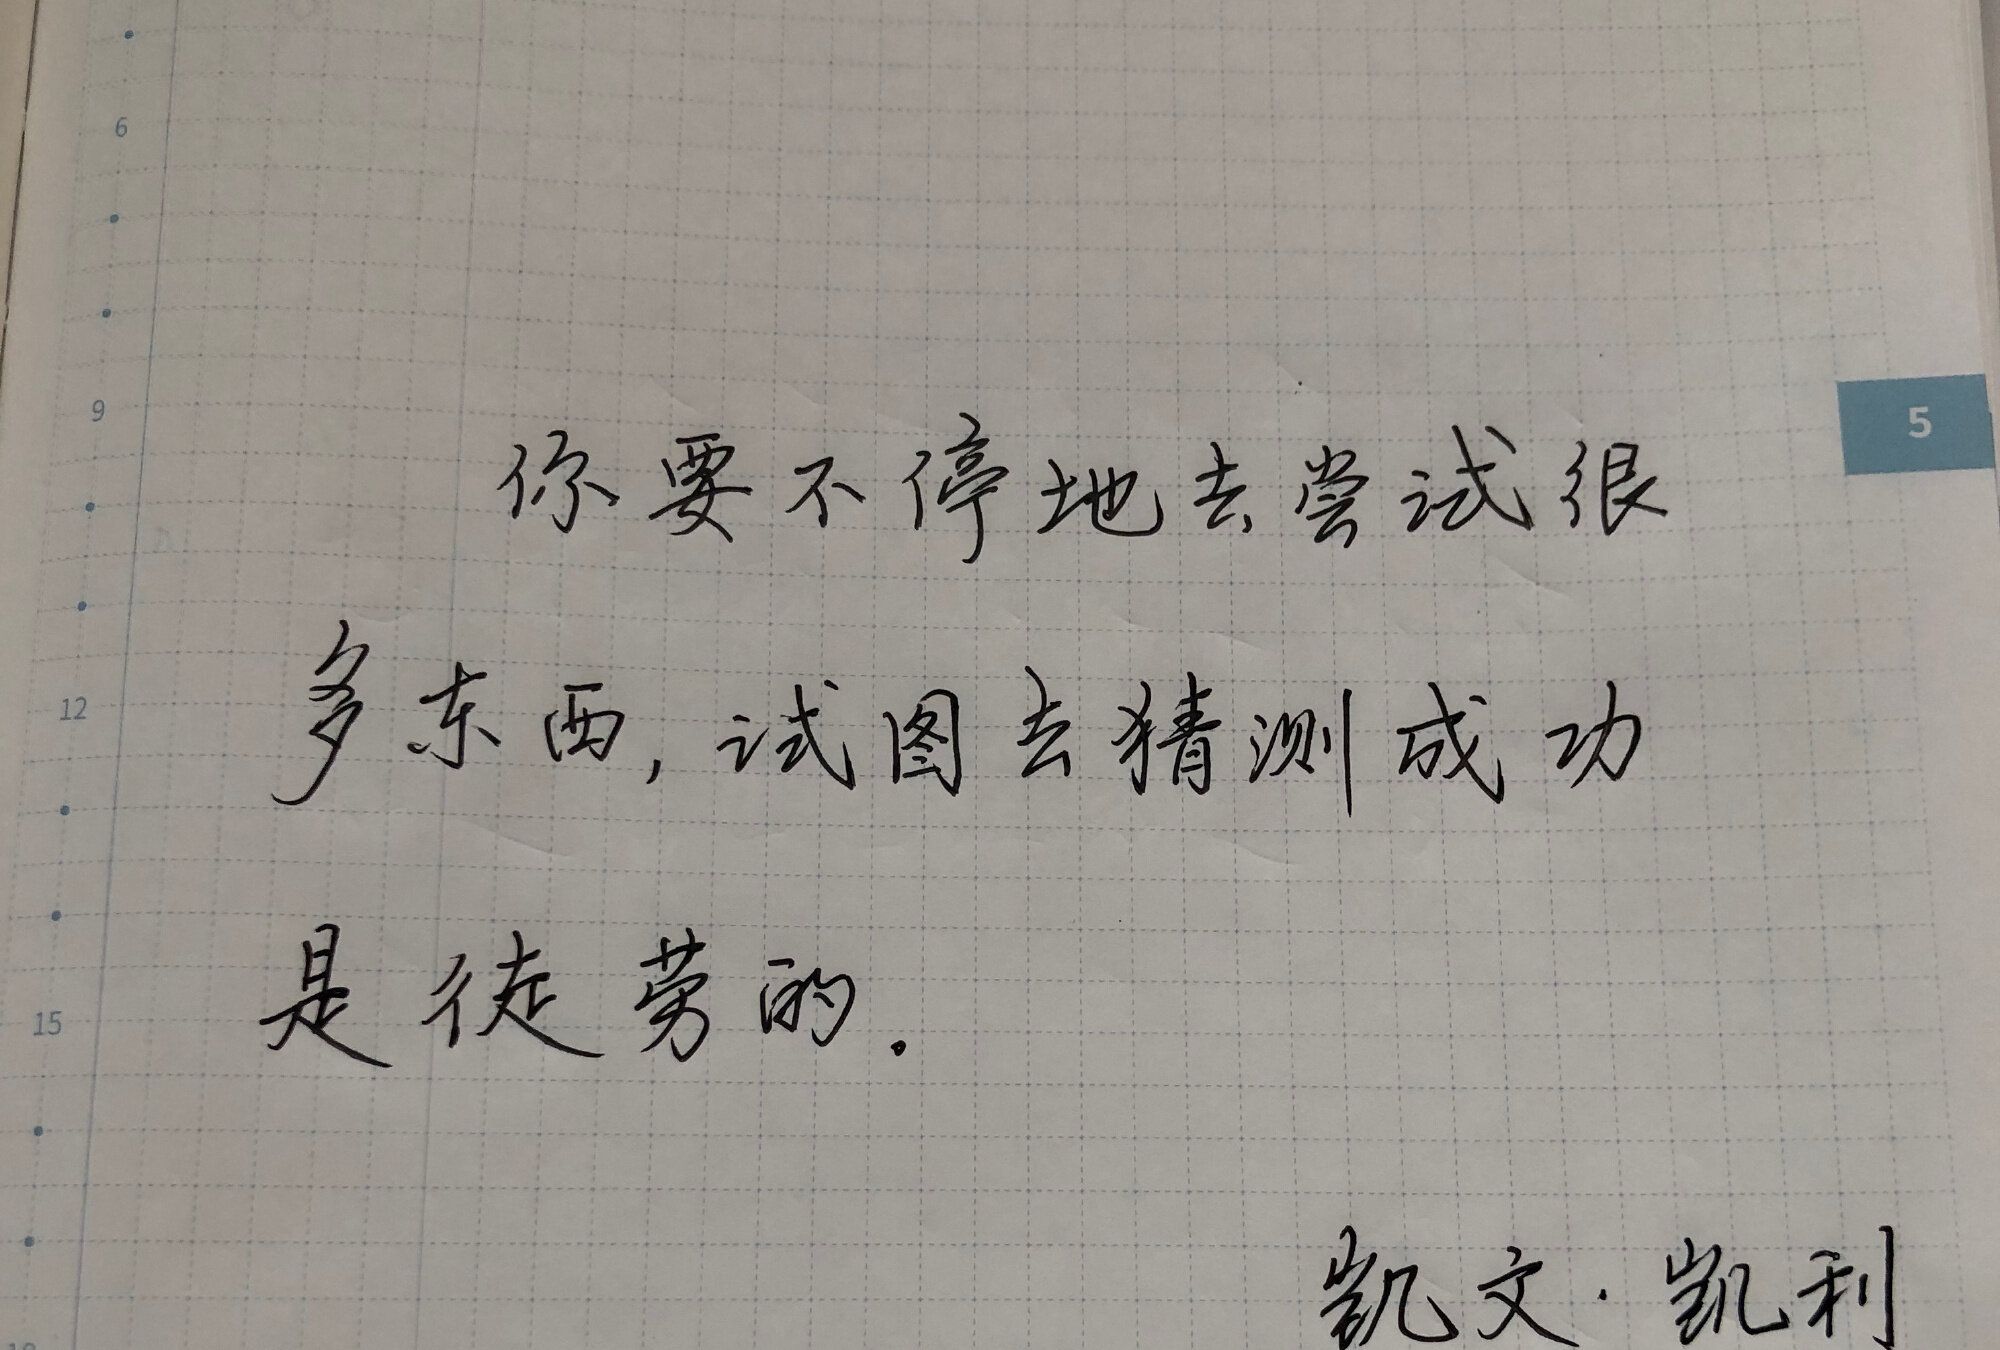 6
9
5
你要不停地去尝试很
12
多东西,试图去猜测成功
15
是徒劳的.
凯文·凯利